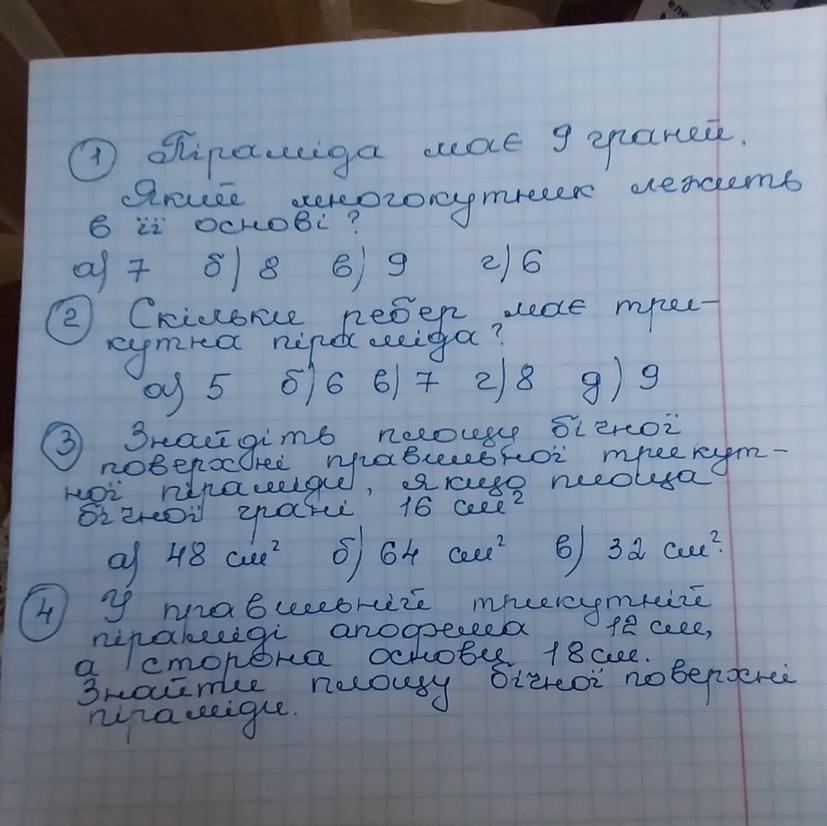 ① Піраміда має 9 граней.
Який многокутник лежить
в її основі?
а) 7 б) 8 в) 9 г) 6
② Скільки ребер має три-
кутна піраміда?
а) 5 б) 6 в) 7 г) 8 д) 9
③ Знайдіть площу бічної
поверхні правильної трикут-
ної піраміди, якщо площа
бічної грані 16 см²
а) 48 см² б) 64 см² в) 32 см².
④ У правильній трикутній
піраміді апофема 12 см,
а сторона основи 18 см.
Знайти площу бічної поверхні
піраміди.